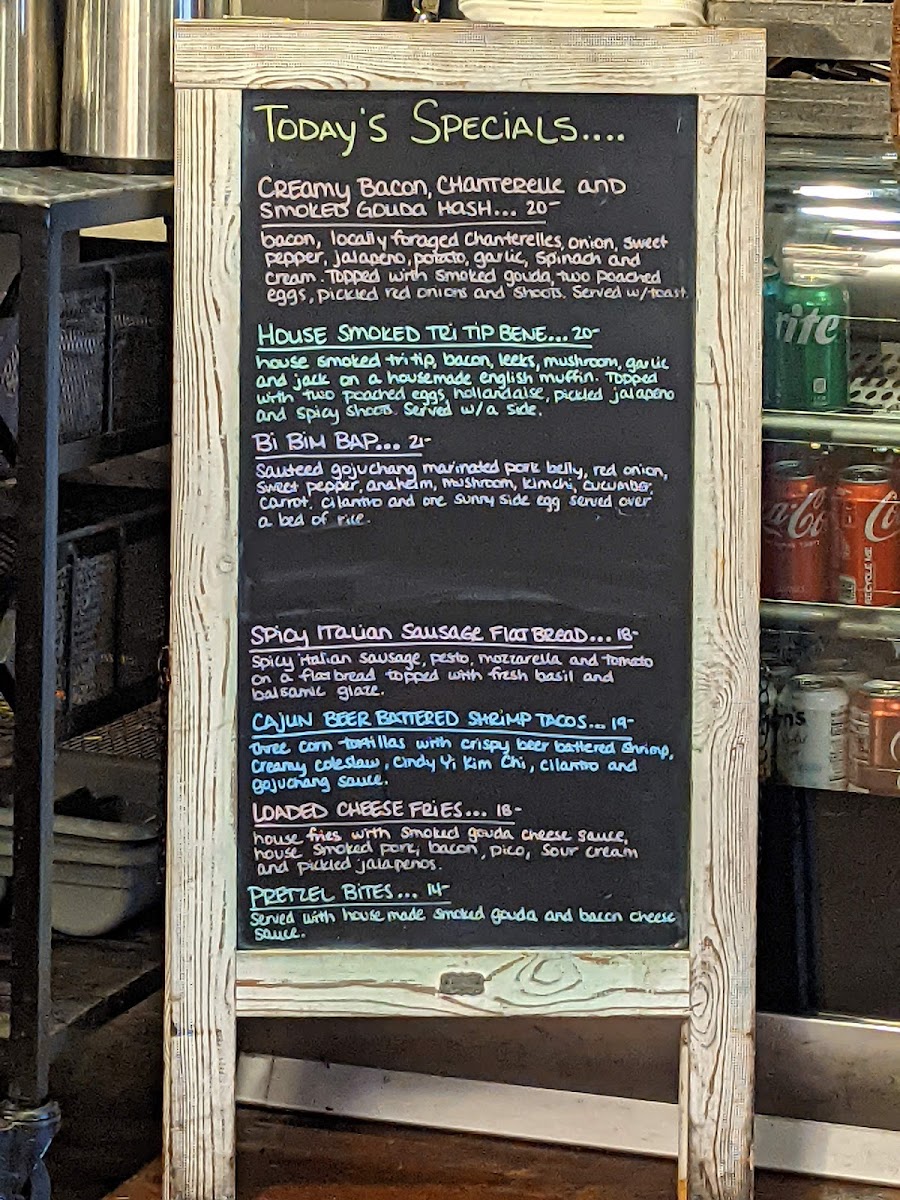 Today's Specials....
Creamy Bacon, Chanterelle and
Smoked Gouda Hash... 20-
bacon, locally foraged chanterelles, onion, sweet
pepper, jalapeno, potato, garlic, spinach and
cream. Topped with smoked gouda, two poached
eggs, pickled red onions and shoots. Served w/toast.
House Smoked Tri Tip Bene... 20-
house smoked tri tip, bacon, leeks, mushroom, garlic
and jack on a housemade english muffin. Topped
with two poached eggs, hollandaise, pickled jalapeno
and spicy shoots. Served w/a side.
Bi Bim Bap... 21-
Sauteed gojuchang marinated pork belly, red onion,
sweet pepper, anaheim, mushroom, kimchi, cucumber,
carrot, cilantro and one sunny side egg served over
a bed of rice.
Spicy Italian Sausage Flat Bread... 18-
Spicy italian sausage, pesto, mozzarella and tomato
on a flatbread topped with fresh basil and
balsamic glaze.
Cajun Beer Battered Shrimp Tacos... 19-
three corn tortillas with crispy beer battered shrimp,
creamy coleslaw, Cindy Yi Kim Chi, cilantro and
gojuchang sauce.
Loaded Cheese Fries... 18-
house fries with smoked gouda cheese sauce,
house smoked pork, bacon, pico, sour cream
and pickled jalapenos.
Pretzel Bites... 14-
Served with house made smoked gouda and bacon cheese
sauce.
rite
RECYCLE ME